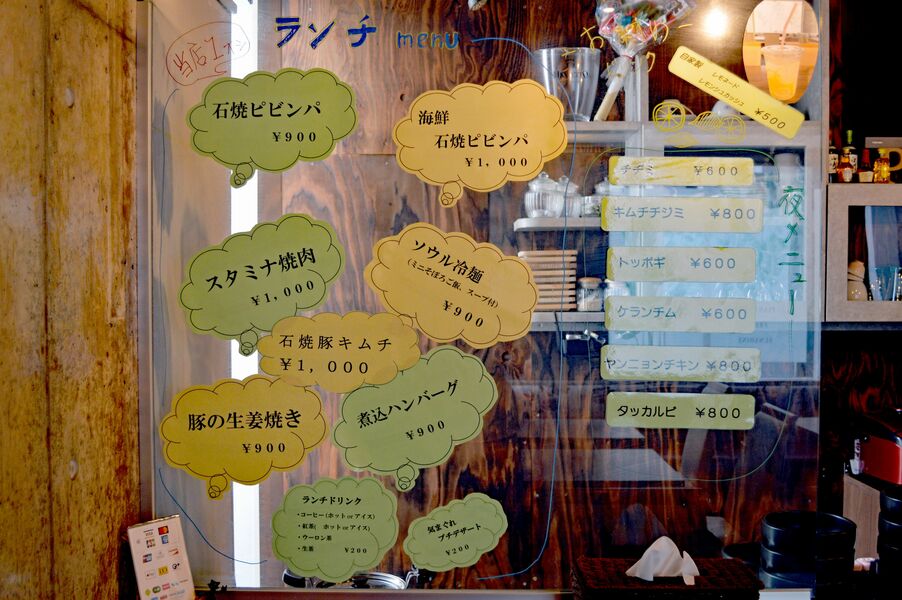 ランチ menu
当店1オシ
石焼ピビンパ
¥900
海鮮
石焼ピビンパ
¥1,000
スタミナ焼肉
¥1,000
ソウル冷麺
(ミニそぼろご飯、スープ付)
¥900
石焼豚キムチ
¥1,000
豚の生姜焼き
¥900
煮込ハンバーグ
¥900
ランチドリンク
・コーヒー(ホットorアイス)
・紅茶( ホットorアイス)
・ウーロン茶
・生茶 ¥200
気まぐれ
プチデザート
¥200
自家製 レモネード
レモンスカッシュ
¥500
夜メニュー
チヂミ ¥600
キムチチジミ ¥800
トッポギ ¥600
ケランチム ¥600
ヤンニョンチキン ¥800
タッカルビ ¥800